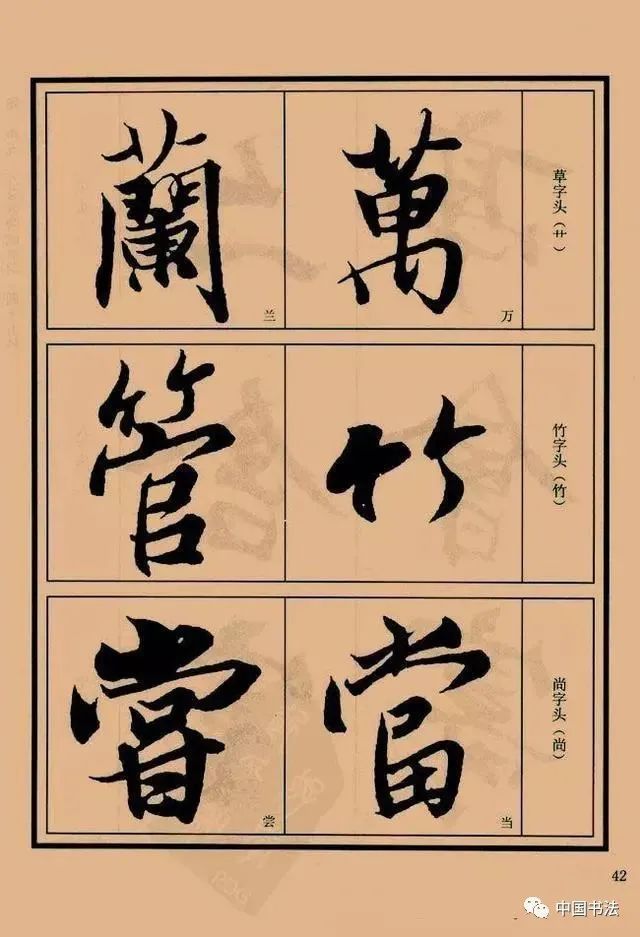 草字头（艹）
萬
万
蘭
兰
竹字头（竹）
竹
管
尚字头（尚）
當
当
嘗
尝
42
中国书法